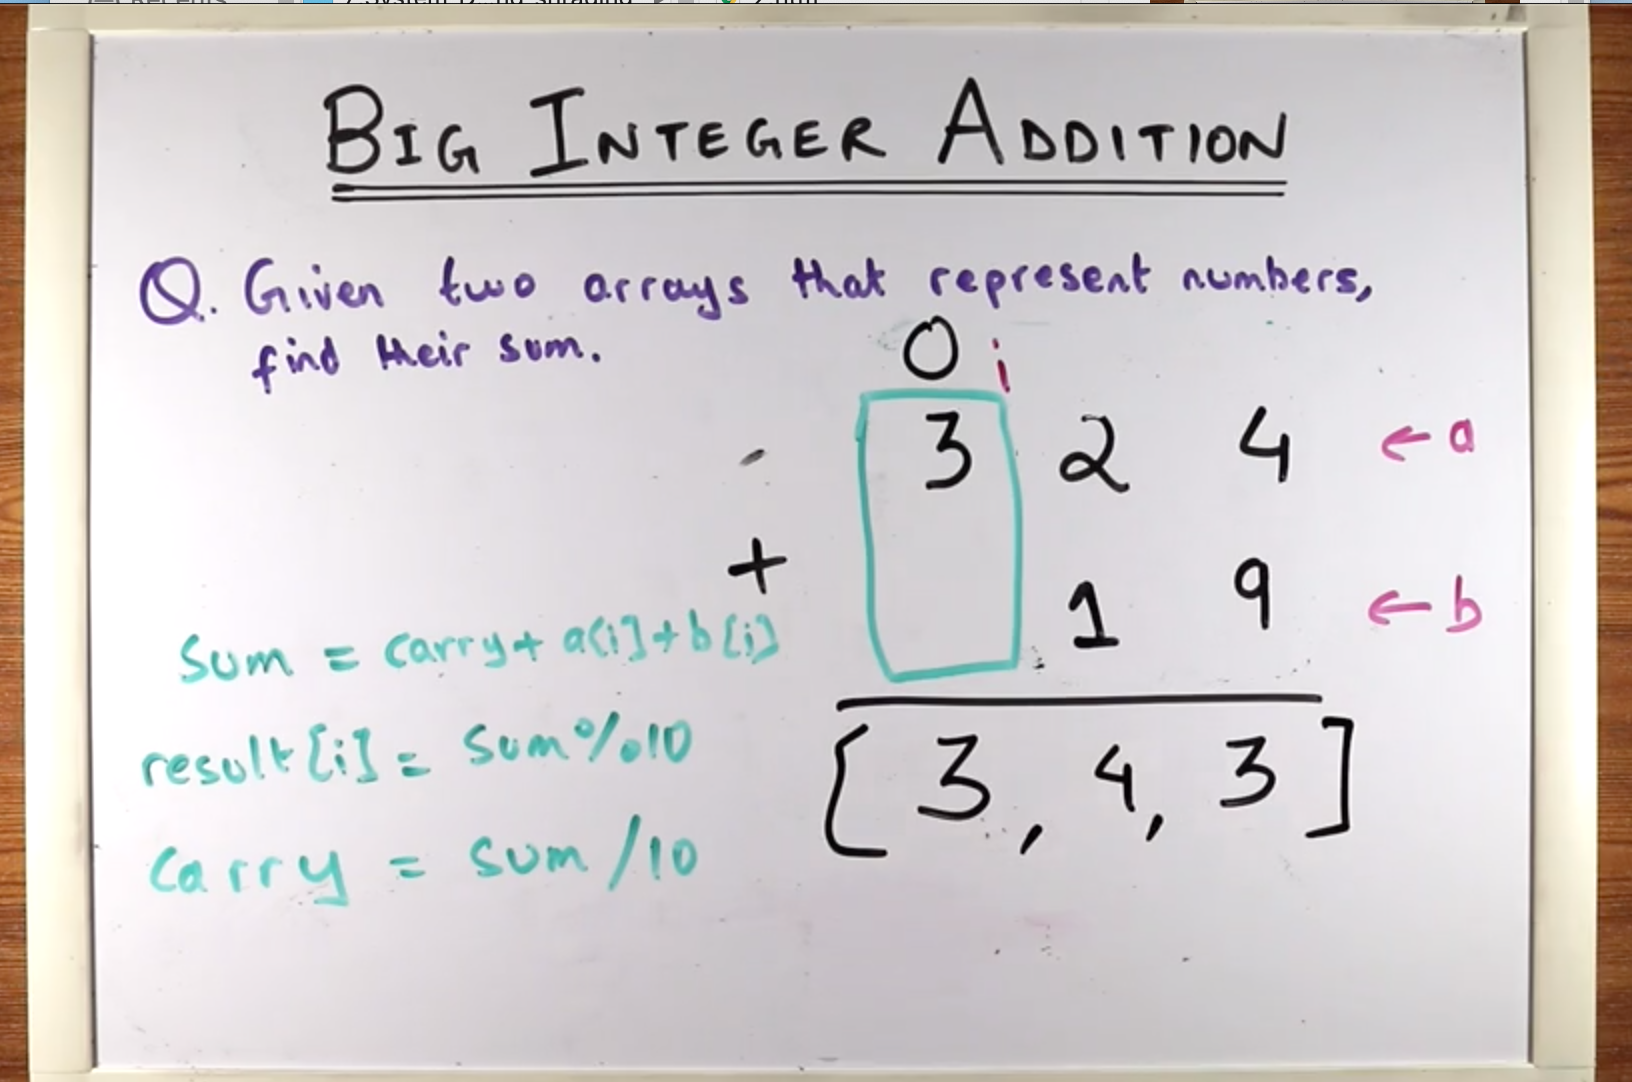 BIG INTEGER ADDITION
Q. Given two arrays that represent numbers,
find their sum.
0 i
3 2 4 ← a
+ 1 9 ← b
Sum = carry + a[i] + b[i]
result[i] = Sum % 10
[3, 4, 3]
carry = sum / 10